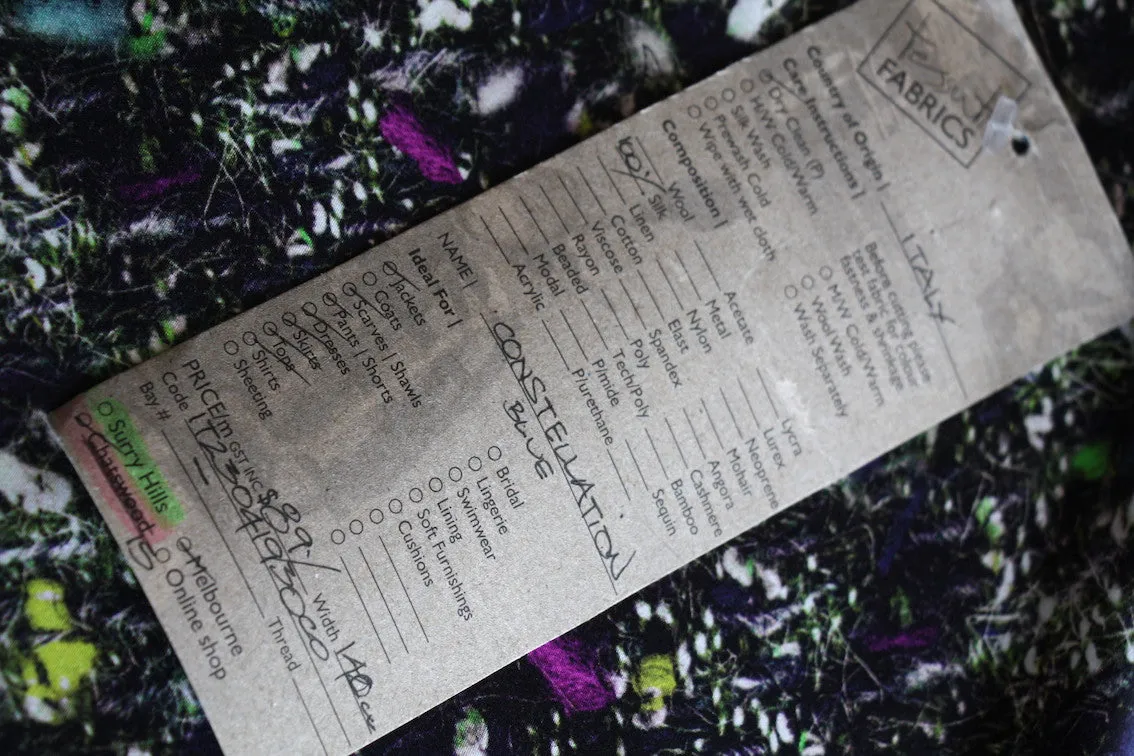 Tessuti
FABRICS
Country of Origin | ITALY
Care Instructions |
Dry Clean (P)
H/W Cold/Warm
Silk Wash
Prewash Cold
Wipe with wet cloth
Before cutting please
test fabric for colour
fastness & shrinkage
M/W Cold/Warm
Wool Wash
Wash Separately
Composition |
Wool
100% Silk
Linen
Cotton
Viscose
Rayon
Beaded
Modal
Acrylic
Acetate
Metal
Nylon
Elast
Spandex
Poly
Tech/Poly
P/mide
P/urethane
Lycra
Lurex
Neoprene
Mohair
Angora
Cashmere
Bamboo
Sequin
NAME | CONSTELLATION
BLUE
Ideal For |
Jackets
Coats
Scarves | Shawls
Pants | Shorts
Dresses
Skirts
Tops
Shirts
Sheeting
Bridal
Lingerie
Swimwear
Lining
Soft Furnishings
Cushions
PRICE/m GST INC $89./ Width 140cm
Code
Bay # Thread
Surry Hills
Chatswood
Melbourne
Online shop